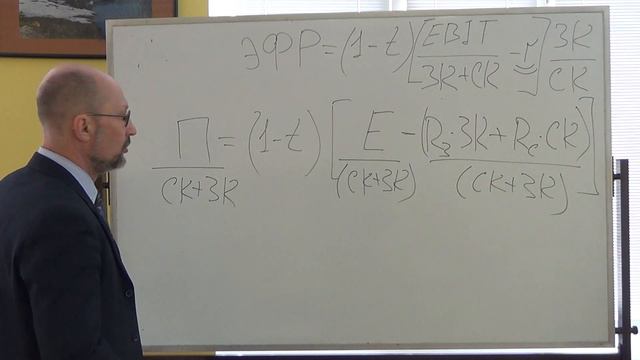 ЭФР = (1-t) [EBIT/(ЗК+СК) - r] ЗК/СК
П/(СК+ЗК) = (1-t) [E/(СК+ЗК) - (Rз·ЗК+Rс·СК)/(СК+ЗК)]